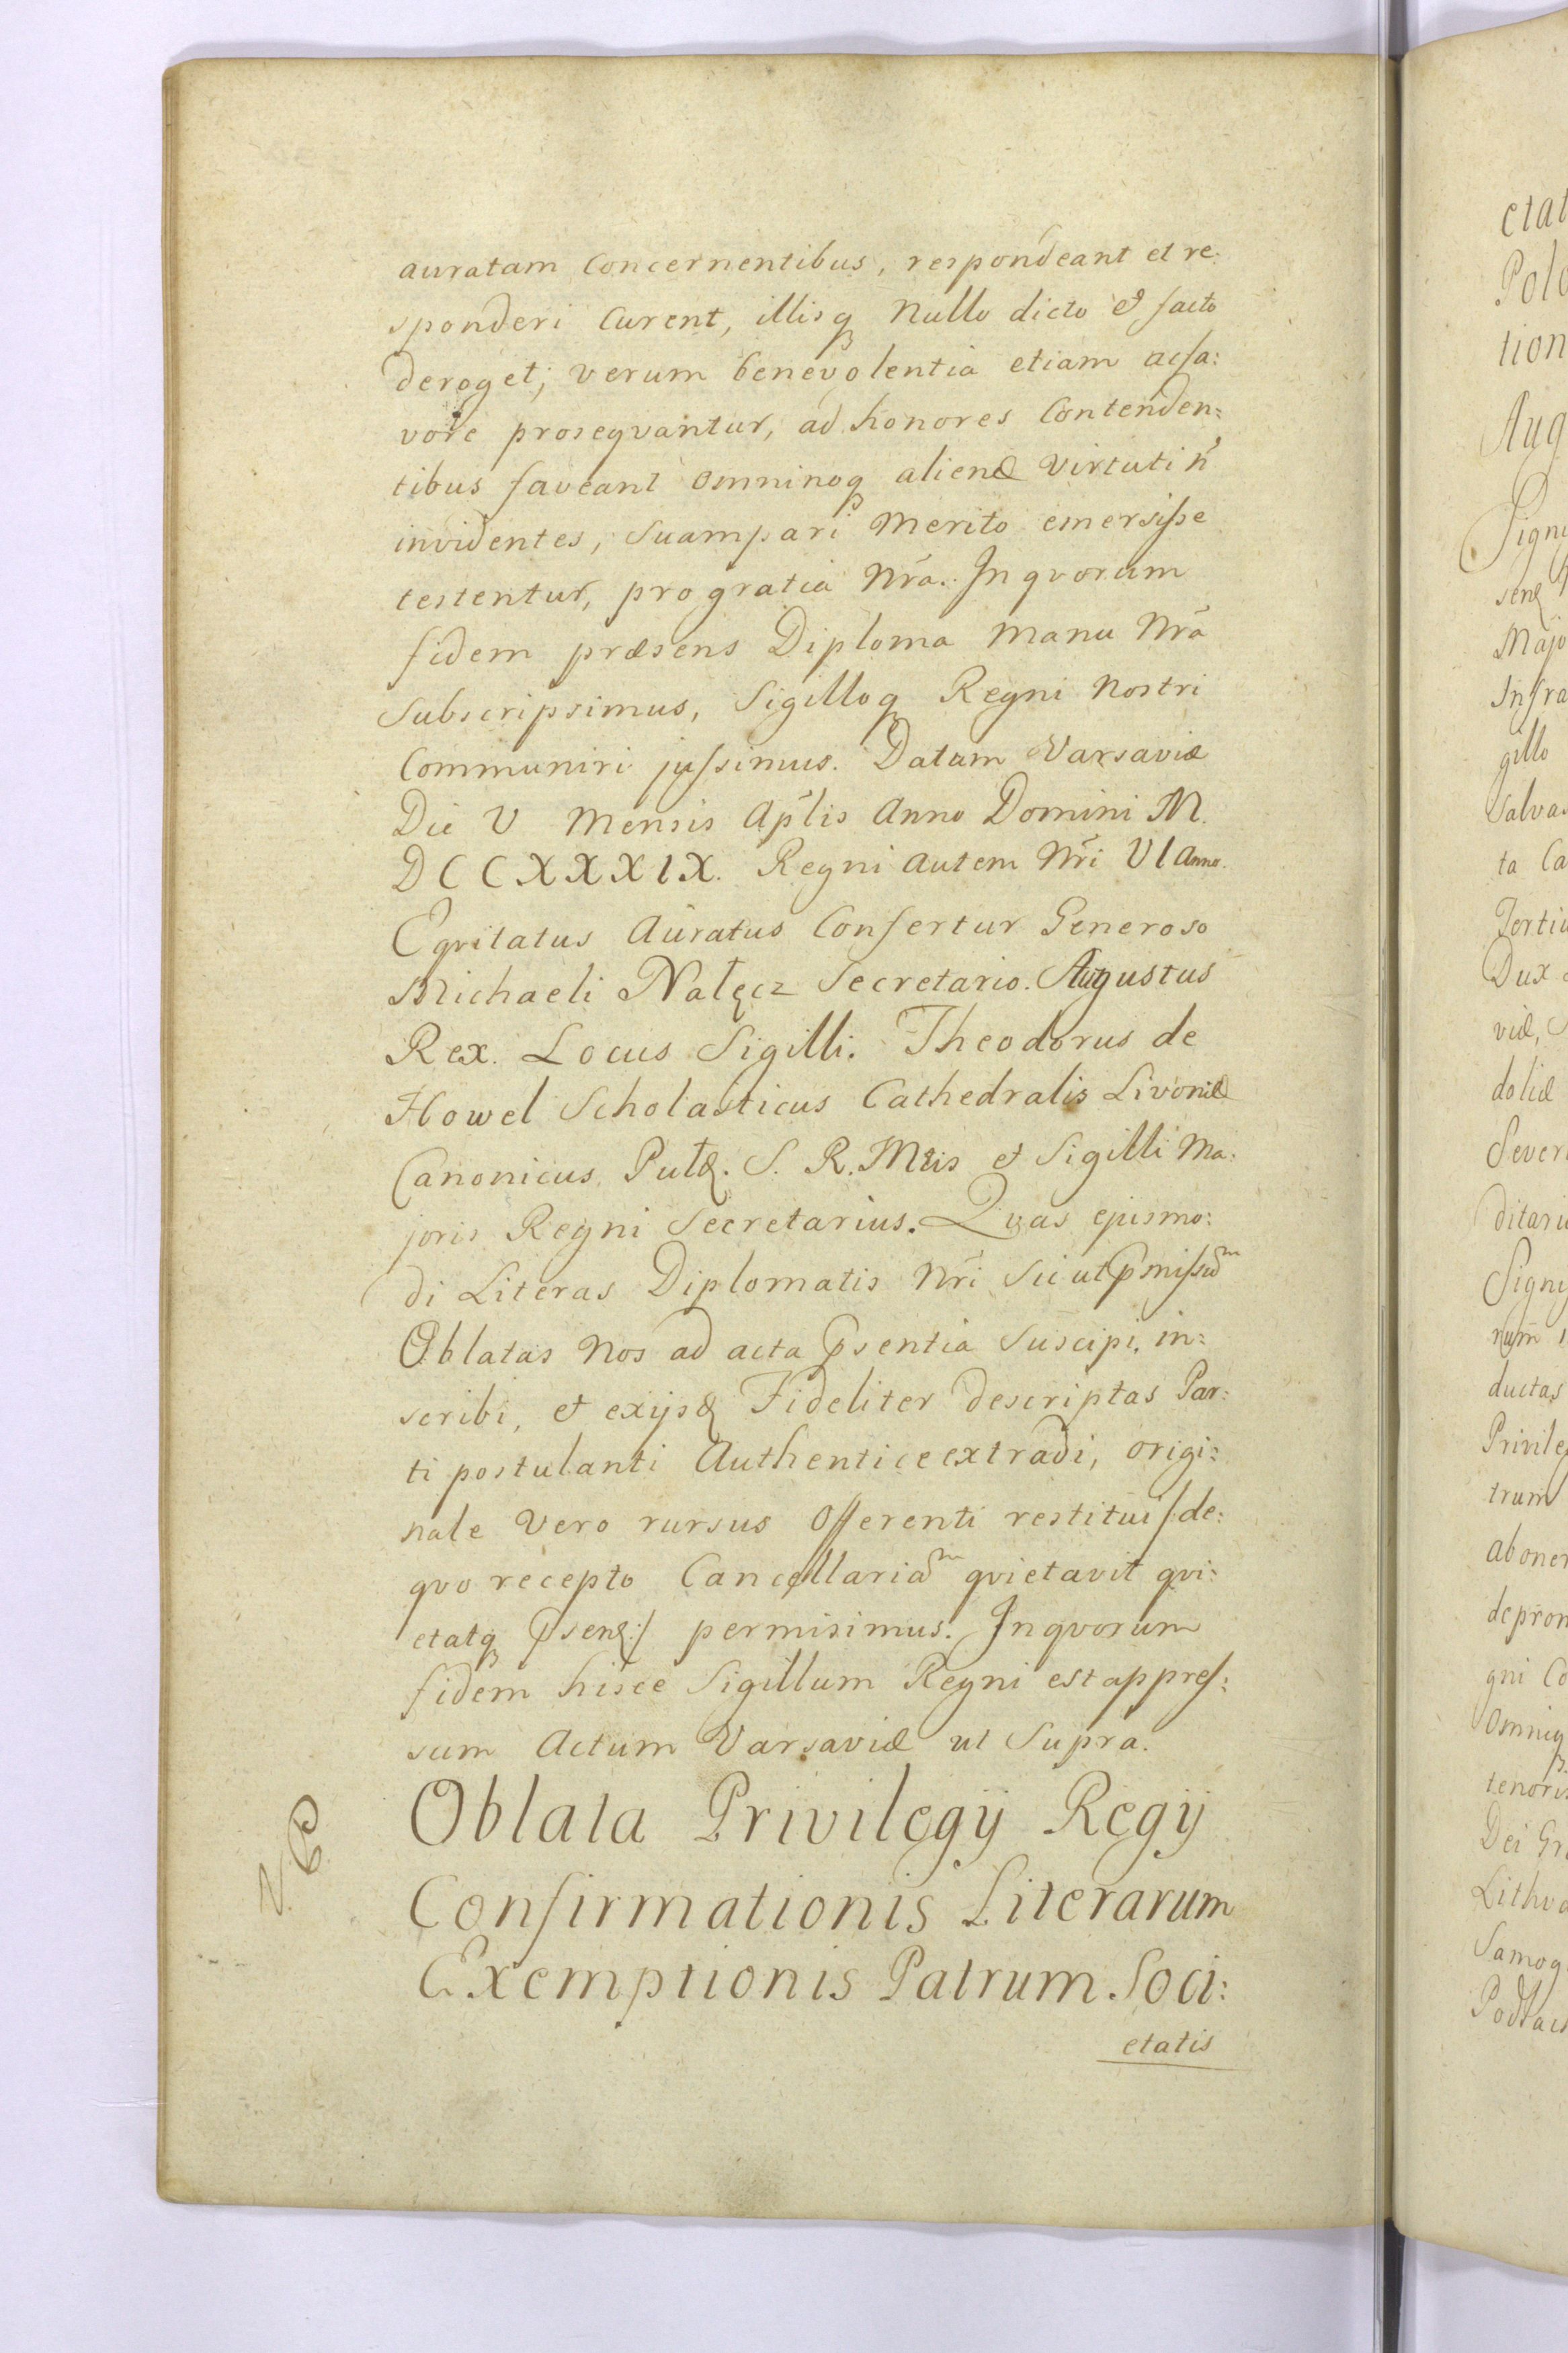 auratam Concernentibus, respondeant et re:
sponderi Curent, illisq Nullo dicto et facto
deroget; verum benevolentia etiam acfa:
vore proseqvantur, ad honores Contenden:
tibus faveant omninoq alienæ Virtuti n̄
invidentes, Suampari Merito emersisse
testentur, pro gratia Nr̄a. In qvorum
fidem præsens Diploma Manu Nr̄a
Subscripsimus, Sigilloq Regni Nostri
Communiri jussimus. Datum Varsaviæ
Die V Mensis Ap̄lis Anno Domini M.
DCCXXXIX. Regni autem Nr̄i VI Anno.
Eqvitatus Auratus Confertur Generoso
Michaeli Nałęcz Secretario. Augustus
Rex. Locus Sigilli. Theodorus de
Howel Scholasticus Cathedralis Livoniæ
Canonicus Pułt. S. R. Mtis et Sigilli Ma:
joris Regni Secretarius. Qvas ejusmo:
di Literas Diplomatis Nr̄i Sicut Pmissũm
Oblatas Nos ad acta Psentia Suscipi, in:
scribi, et exijsd Fideliter descriptas Par:
ti postulanti Authentice extradi, origi:
nale Vero rursus Offerenti restitui /:de:
qvo recepto Cancellariam qvietavit qvi:
etatq Psen:/ permisimus. Inqvorum
fidem hisce Sigillum Regni est appres:
sum Actum Varsaviæ ut Supra.
Oblata Privilegij Regij
Confirmationis Literarum
Exemptionis Patrum Soci:
etatis